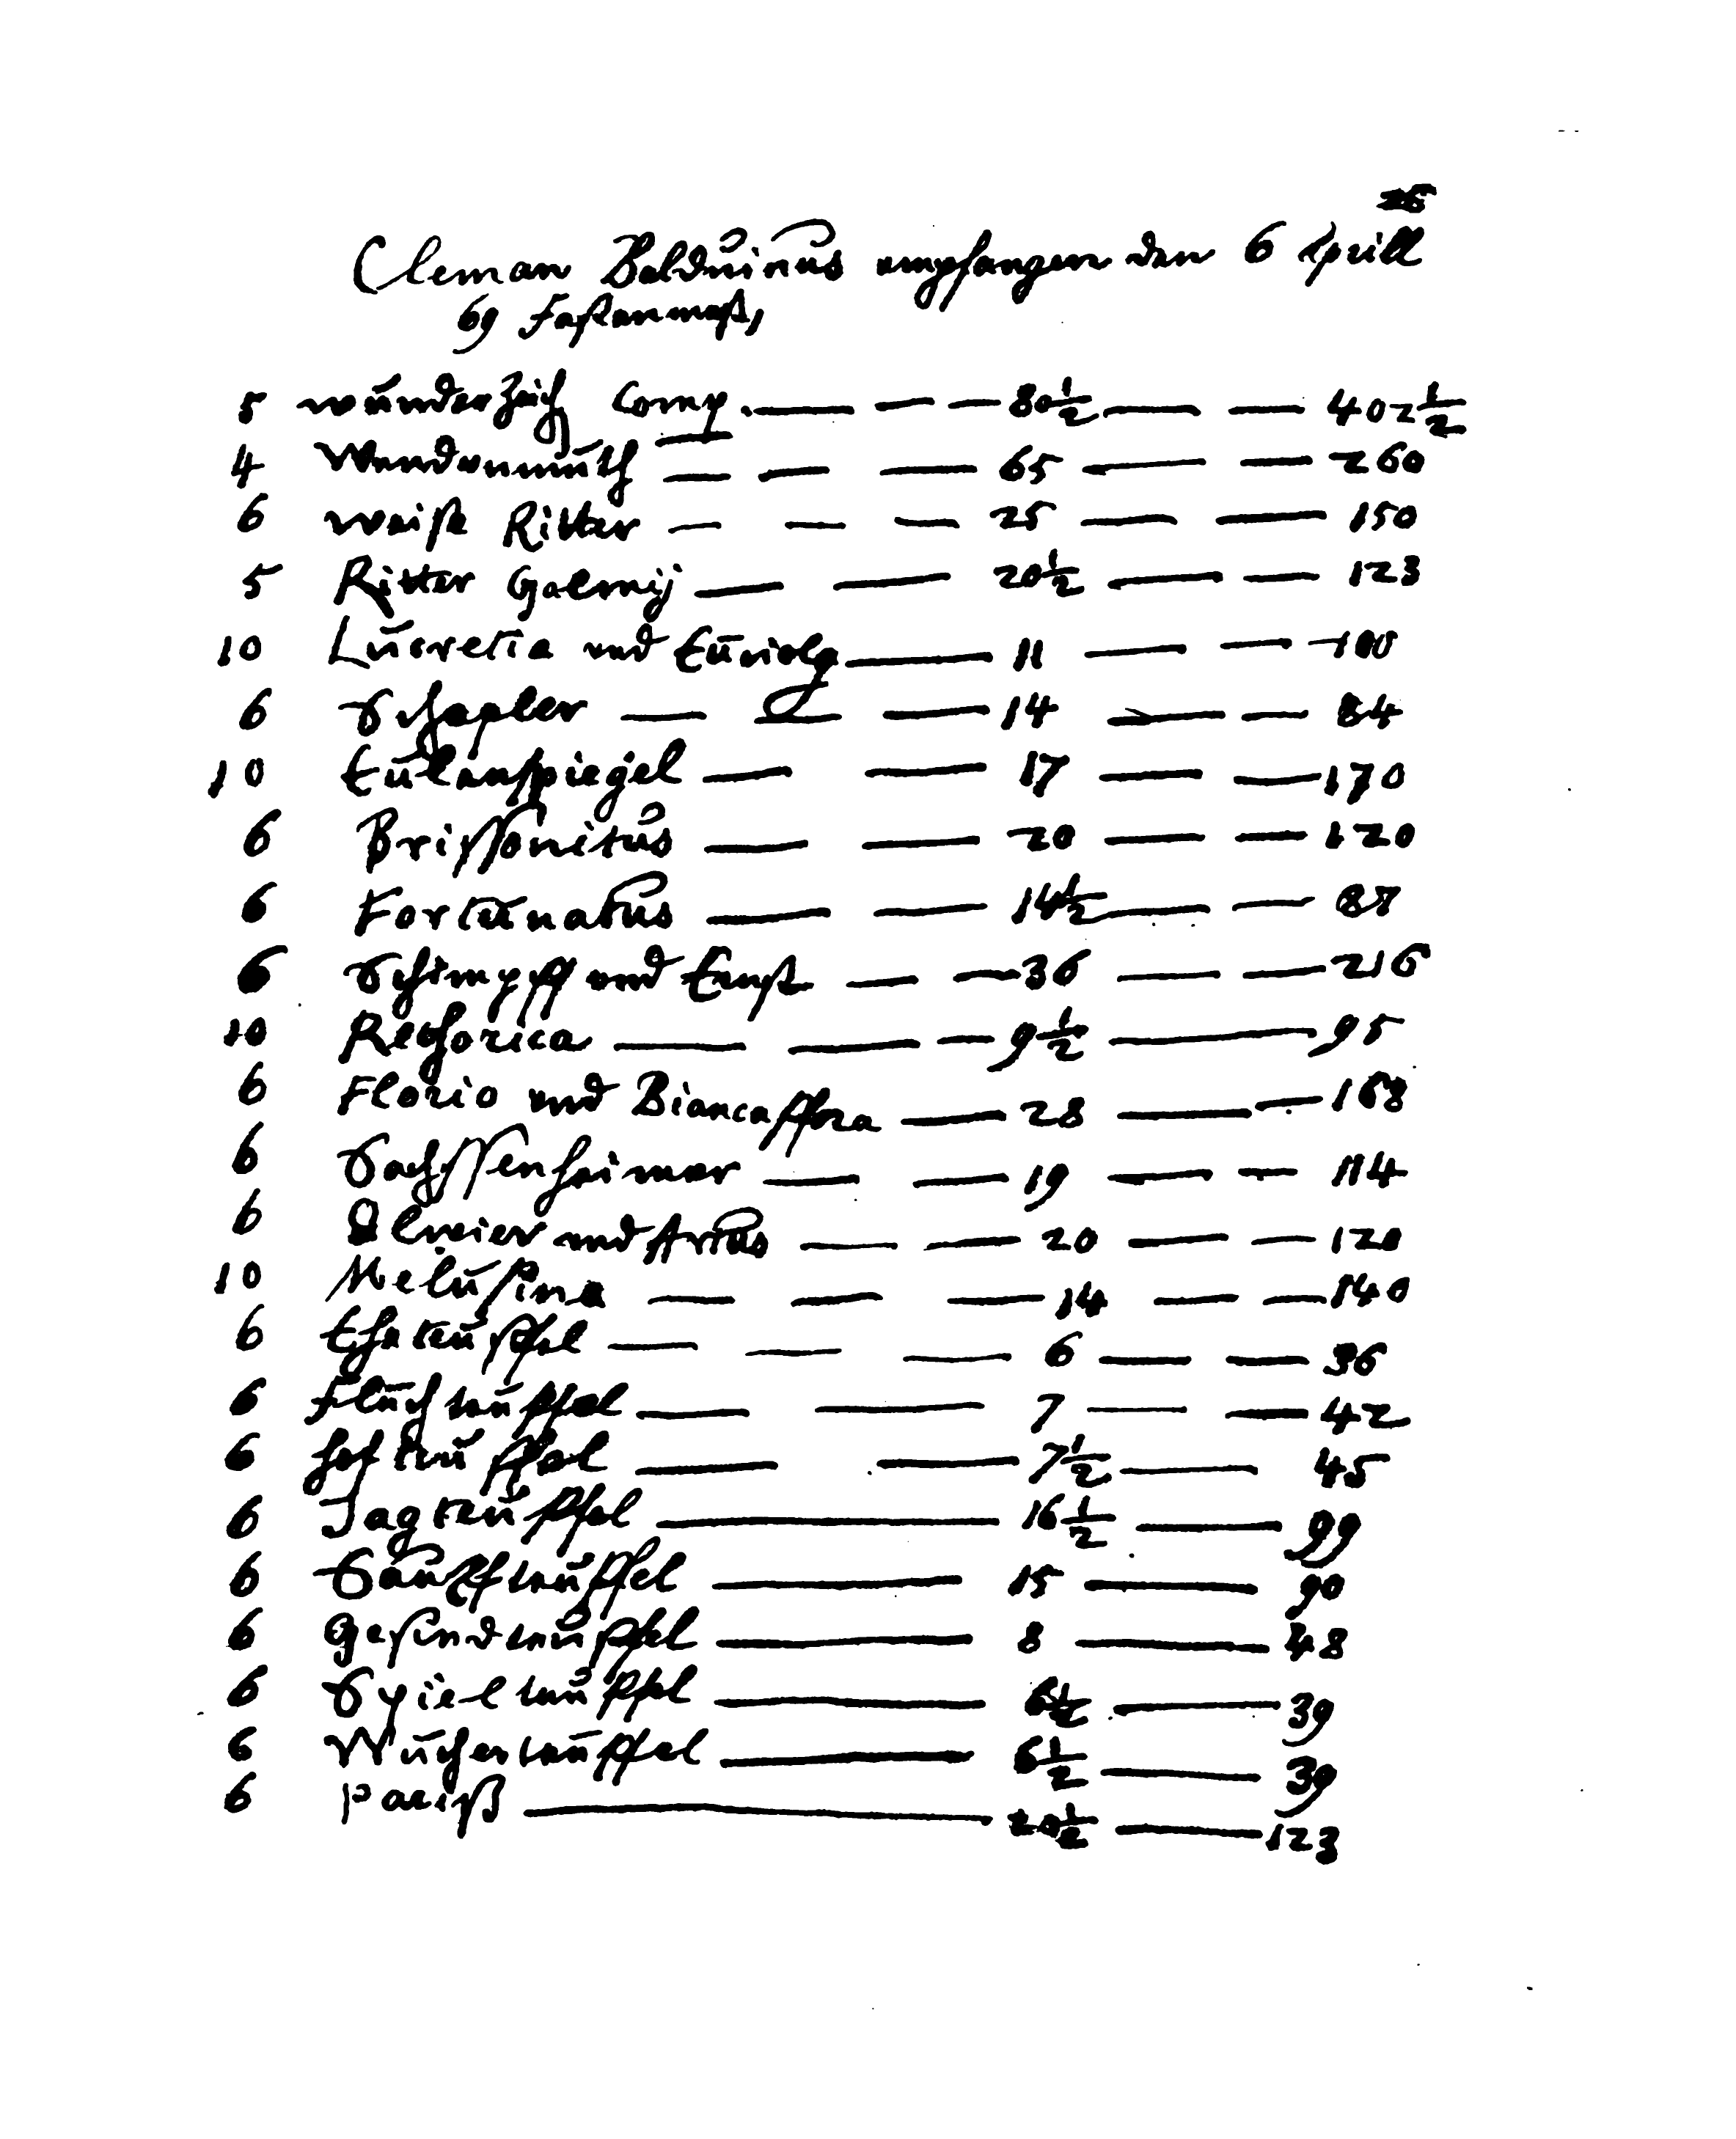 Cleman Balduinus empfangen den 6 April
69 Fastenmeß,
5 wunderzeich comp. — — — 80½ — — 402½
4 Wendunmuth — — — 65 — — 260
6 weiße Ritter — — — 25 — — 150
5 Ritter Galmy — — 20½ — — 123
10 Lucretia und Euriolg — 11 — — 100
6 Schapler — — — 14 — — 84
10 Eulenspiegel — — 17 — — 170
6 Brissonitus — — 20 — — 120
6 Fortunatus — — 14½ — — 87
6 Schimpff und Ernst — — 36 — — 216
10 Rethorica — — — 9½ — 95
6 Florio und Biancaffora — 28 — — 168
6 Sachssenheimer — — 19 — — 114
6 Olwier und Artus — — 20 — — 120
10 Melusina — — — 14 — — 140
6 Eheteuffel — — — 6 — — 36
6 fluchteuffel — — 7 — — 42
6 hofteuffel — — 7½ — 45
6 Jagteuffel — 16½ — 99
6 Sauffteuffel — 15 — 90
6 Gesindteuffel — 8 — 48
6 Spielteuffel — 6½ — 39
6 Wucherteuffel — 6½ — 39
6 Pariß — 20½ — 123